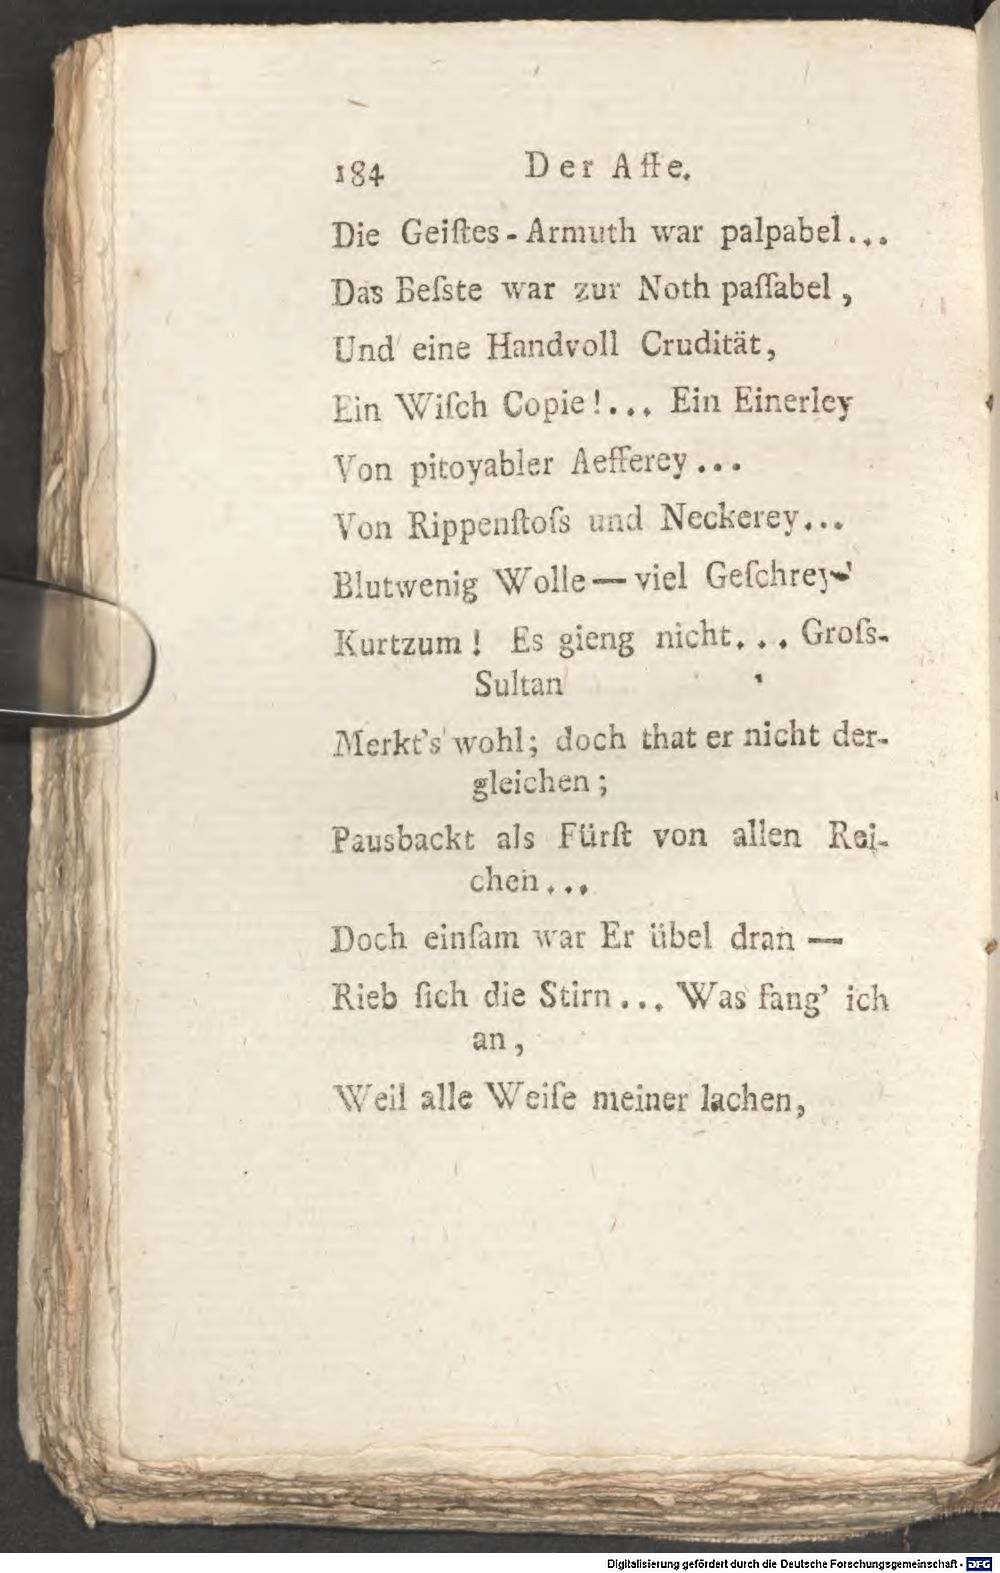 184 Der Affe.
Die Geiſtes-Armuth war palpabel...
Das Beſste war zur Noth paſſabel,
Und eine Handvoll Crudität,
Ein Wiſch Copie!... Ein Einerley
Von pitoyabler Aefferey...
Von Rippenſtoſs und Neckerey...
Blutwenig Wolle — viel Geſchrey
Kurtzum! Es gieng nicht... Groſs-
Sultan
Merkt's wohl; doch that er nicht der-
gleichen;
Pausbackt als Fürſt von allen Rei-
chen...
Doch einſam war Er übel dran —
Rieb ſich die Stirn... Was fang' ich
an,
Weil alle Weiſe meiner lachen,
Digitalisierung gefördert durch die Deutsche Forschungsgemeinschaft - DFG